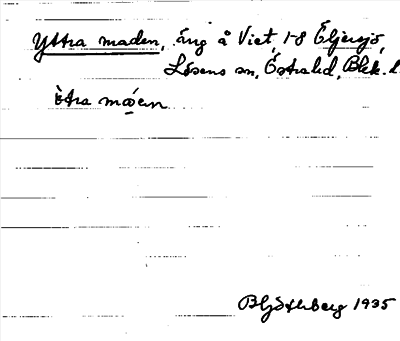 Yttra maden, äng å Viet, 1-8 Öljersjö,
Lösens sn, Östra hd, Blek. l.
Bl Götlberg 1935